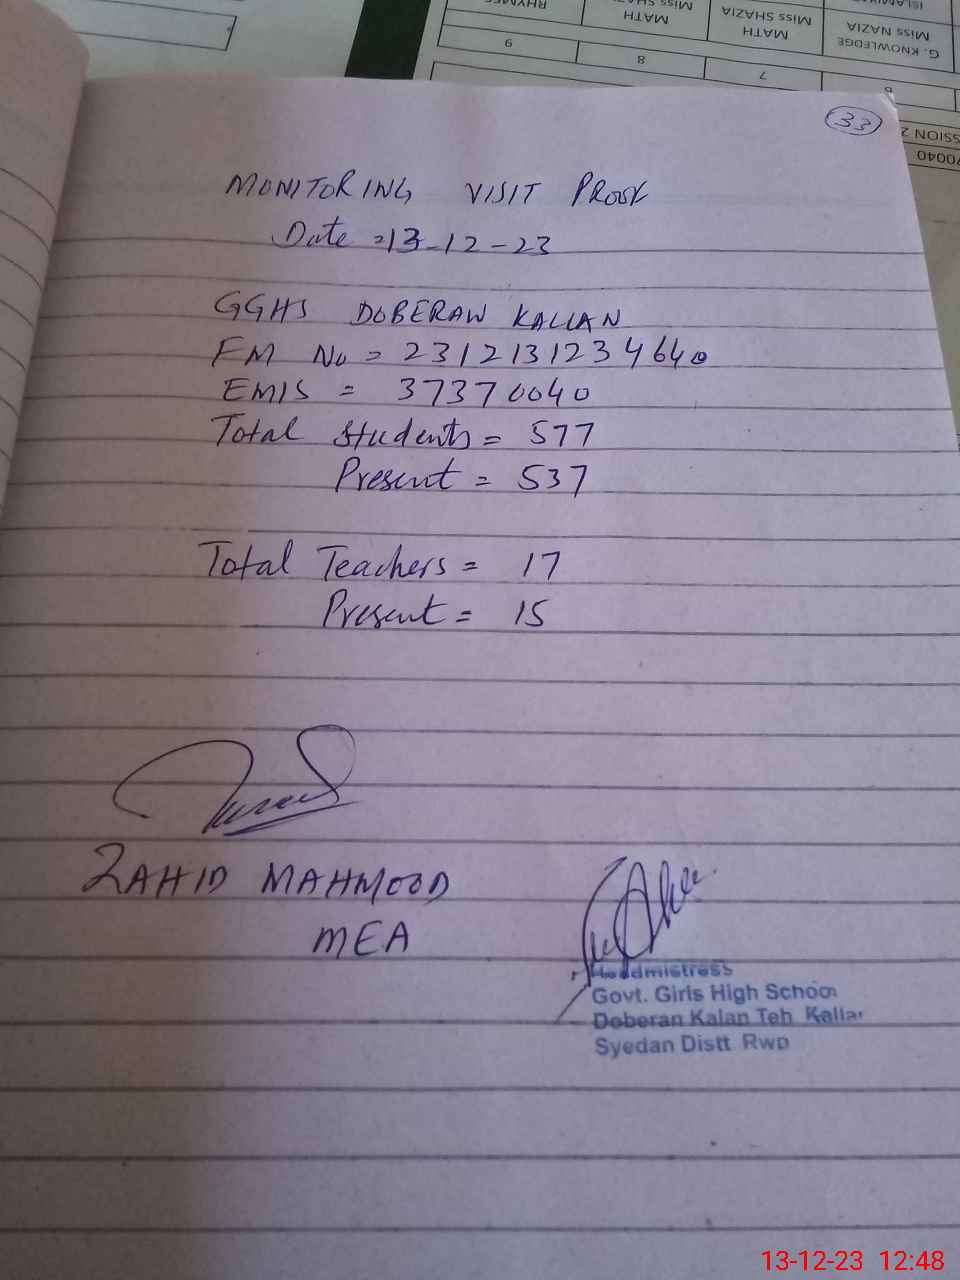 RHYMES
MATH
MISS SHAZIA
MATH
Miss NAZIA
G. KNOWLEDGE
9
8
7
6
33
MONITORING VISIT PROOF
Date = 13-12-23
GGHS DOBERAN KALLAN
FM No = 2312131234640
EMIS = 37370040
Total Students = 577
Present = 537
Total Teachers = 17
Present = 15
ZAHID MAHMOOD
MEA
Headmistress
Govt. Girls High School
Doberan Kalan Teh Kallar
Syedan Distt Rwp
13-12-23 12:48